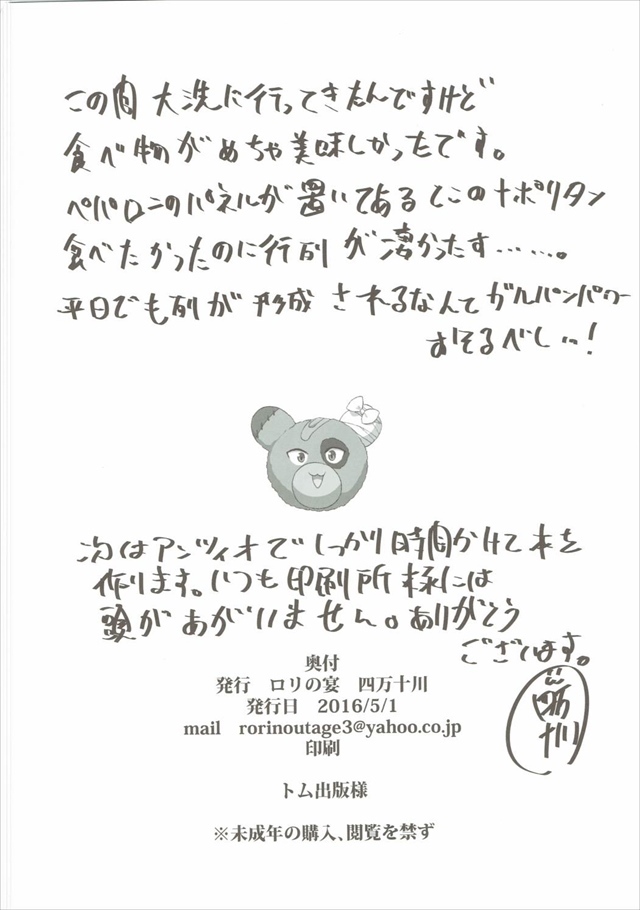 この間 大洗に行ってきたんですけど
食べ物がめちゃ美味しかったです。
ペパロニのパネルが置いてあるとこのナポリタン
食べたかったのに行列が凄かったす……。
平日でも列が形成されるなんてガルパンパワー
おそるべしっ!
次はアンツィオでしっかり時間かけて本を
作ります。いつも印刷所様には
頭があがいません。ありがとう
ございます。
四万
十川
奥付
発行 ロリの宴 四万十川
発行日 2016/5/1
mail rorinoutage3@yahoo.co.jp
印刷
トム出版様
※未成年の購入、閲覧を禁ず